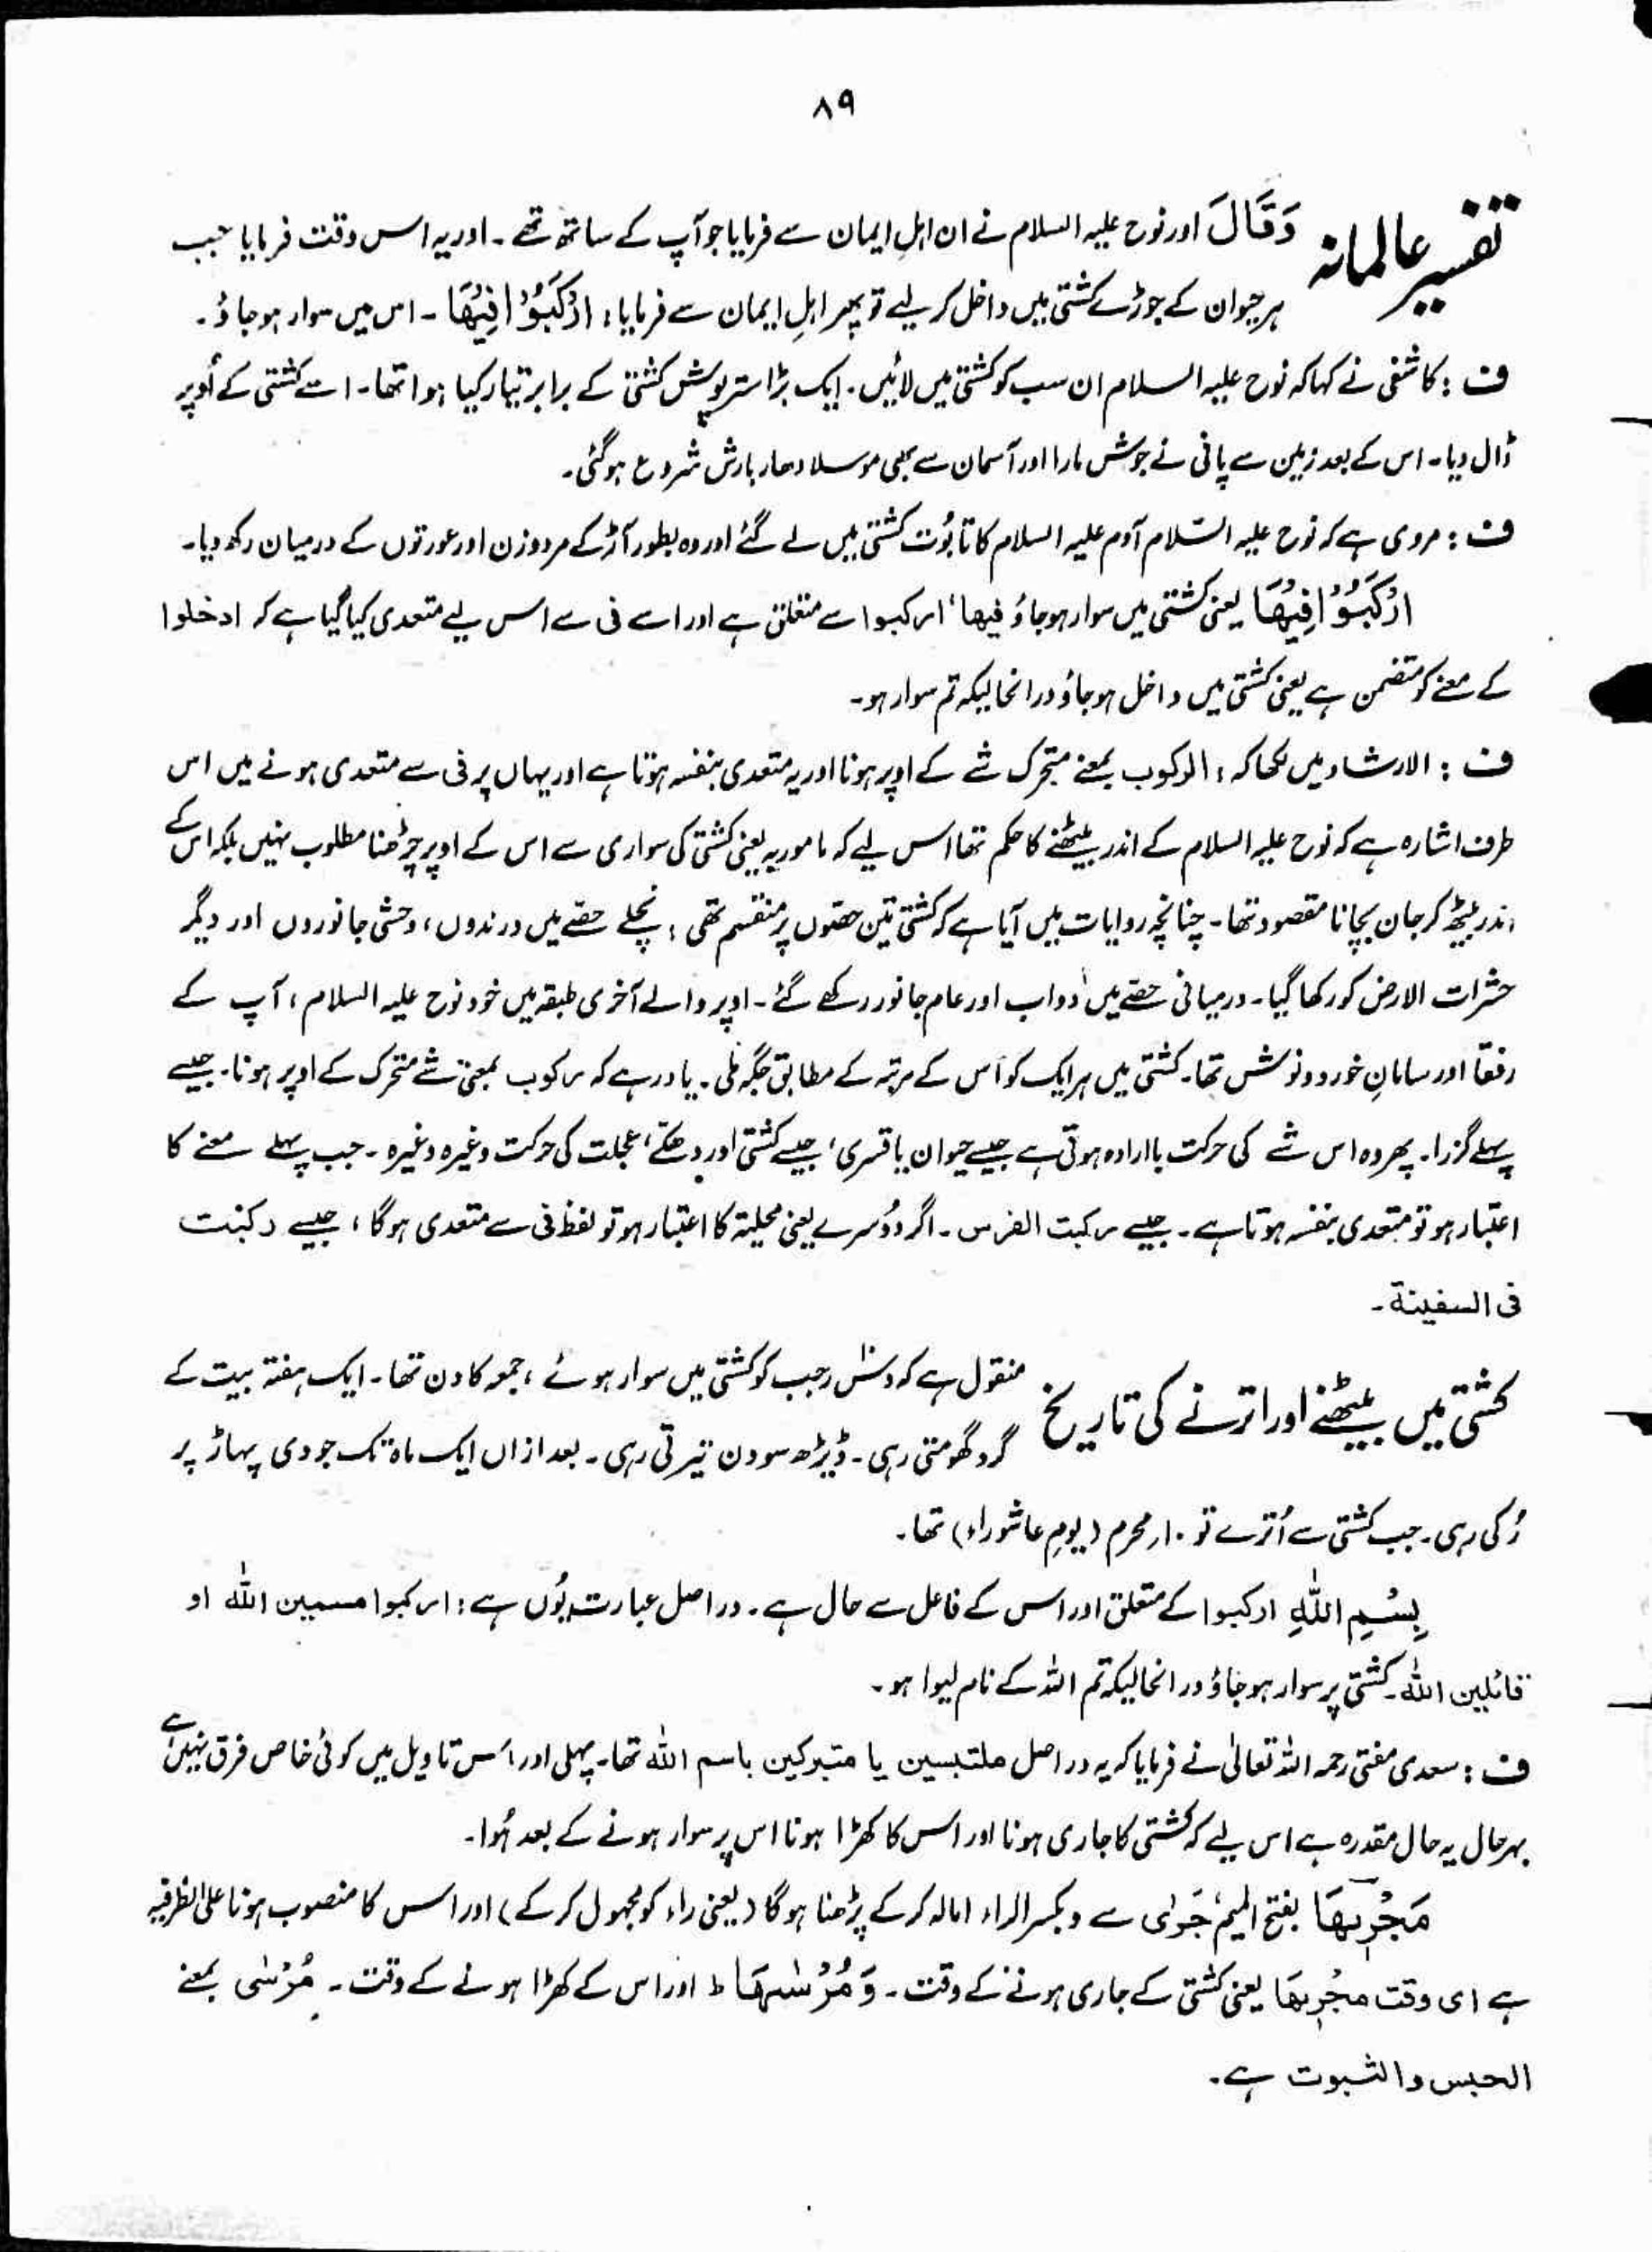 ۸۹
تفسیر عالمانہ
وَقَالَ اور نوح علیہ السلام نے ان اہلِ ایمان سے فرمایا جو آپ کے ساتھ تھے۔ اور یہ اس وقت فرمایا جب
ہر حیوان کے جوڑے کشتی میں داخل کر لیے تو پھر اہلِ ایمان سے فرمایا: ارْكَبُوْا فِيْهَا۔ اس میں سوار ہو جاؤ۔
ف : کاشفی نے کہا کہ نوح علیہ السلام ان سب کو کشتی میں لائیں۔ ایک بڑا سترپوش کشتی کے برابر تیار کیا ہوا تھا۔ اسے کشتی کے اُوپر
ڈال دیا۔ اس کے بعد زمین سے پانی نے جوش مارا اور آسمان سے بھی موسلا دھار بارش شروع ہوگئی۔
ف : مروی ہے کہ نوح علیہ السّلام آدم علیہ السلام کا تابُوت کشتی میں لے گئے اور وہ بطور آڑ کے مردوزن اور عورتوں کے درمیان رکھ دیا۔
ارْكَبُوْا فِيْهَا یعنی کشتی میں سوار ہو جاؤ فیھا، ارکبوا سے متعلق ہے اور اسے فی سے اس لیے متعدی کیا گیا ہے کہ ادخلوا
کے معنے کو متضمن ہے یعنی کشتی میں داخل ہو جاؤ درانحالیکہ تم سوار ہو۔
ف : الارشاد میں لکھا کہ : الرکوب بمعنے متحرک شے کے اوپر ہونا اور یہ متعدی بنفسہ ہوتا ہے اور یہاں پر فی سے متعدی ہونے میں اس
طرف اشارہ ہے کہ نوح علیہ السلام کے اندر بیٹھنے کا حکم تھا اس لیے کہ مامور بہ یعنی کشتی کی سواری سے اس کے اوپر چڑھنا مطلوب نہیں بلکہ اس کے
اندر بیٹھ کر جان بچانا مقصود تھا۔ چنانچہ روایات میں آیا ہے کہ کشتی تین حصّوں پر منقسم تھی : نچلے حصّے میں درندوں، وحشی جانوروں اور دیگر
حشرات الارض کو رکھا گیا۔ درمیانی حصّے میں دواب اور عام جانور رکھے گئے۔ اوپر والے آخری طبقہ میں خود نوح علیہ السلام، آپ کے
رفقا اور سامانِ خورد و نوش تھا۔ کشتی میں ہر ایک کو اس کے مرتبہ کے مطابق جگہ ملی۔ یاد رہے کہ رکوب بمعنے شے متحرک کے اوپر ہونا۔ جیسے
پہلے گزرا۔ پھر وہ اس شے کی حرکت باارادہ ہوتی ہے جیسے حیوان یا قسری، جیسے کشتی اور دھکّے، عجلت کی حرکت وغیرہ وغیرہ۔ جب پہلے معنے کا
اعتبار ہو تو متعدی بنفسہ ہوتا ہے۔ جیسے رکبت الفرس۔ اگر دوسرے یعنی محلیۃ کا اعتبار ہو تو لفظ فی سے متعدی ہوگا، جیسے رکبت
فی السفینۃ۔
کشتی میں بیٹھنے اور اترنے کی تاریخ
منقول ہے کہ دس رجب کو کشتی میں سوار ہوئے، جمعہ کا دن تھا۔ ایک ہفتہ بیت کے
گرد گھومتی رہی۔ ڈیڑھ سو دن تیرتی رہی۔ بعد ازاں ایک ماہ تک جودی پہاڑ پر
رُکی رہی۔ جب کشتی سے اُترے تو ۱۰ر محرم (یومِ عاشوراء) تھا۔
بِسْمِ اللّٰهِ ارکبوا کے متعلق اور اس کے فاعل سے حال ہے۔ دراصل عبارت یُوں ہے : ارکبوا مسمین اللّٰہ او
قائلین اللّٰہ۔ کشتی پر سوار ہو جاؤ درانحالیکہ تم اللہ کے نام لیوا ہو۔
ف : سعدی مفتی رحمہ اللہ تعالیٰ نے فرمایا کہ یہ دراصل ملتبسین یا متبرکین باسم اللّٰہ تھا۔ پہلی اور اس تاویل میں کوئی خاص فرق نہیں ہے
بہرحال یہ حال مقدرہ ہے اس لیے کہ کشتی کا جاری ہونا اور اس کا کھڑا ہونا اس پر سوار ہونے کے بعد ہُوا۔
مَجْرٖىهَا بفتح المیم جَرٰی سے و بکسر الراء امالہ کرکے پڑھنا ہوگا (یعنی راء کو مجہول کرکے) اور اس کا منصوب ہونا علی الظرفیہ
ہے ای وقت مجرٖىها یعنی کشتی کے جاری ہونے کے وقت۔ وَ مُرْسٰىهَا ط اور اس کے کھڑا ہونے کے وقت۔ مُرْسٰی بمعنے
الحبس والثبوت ہے۔